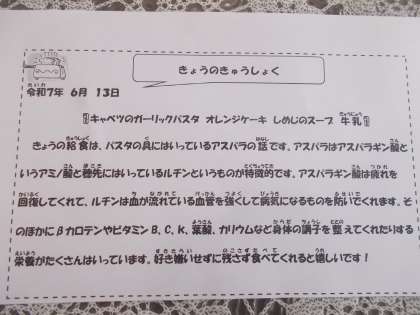 きょうのきゅうしょく
令和7年 6月 13日
🥛キャベツのガーリックパスタ オレンジケーキ しめじのスープ 牛乳🥛
きょうの給食は、パスタの具にはいっているアスパラの話です。アスパラはアスパラギン酸と
いうアミノ酸と穂先にはいっているルチンというものが特徴的です。アスパラギン酸は疲れを
回復してくれて、ルチンは血が流れている血管を強くして病気になるものを防いでくれます。そ
のほかにβカロテンやビタミンB、C、K、葉酸、カリウムなど身体の調子を整えてくれたりする
栄養がたくさんはいっています。好き嫌いせずに残さず食べてくれると嬉しいです！